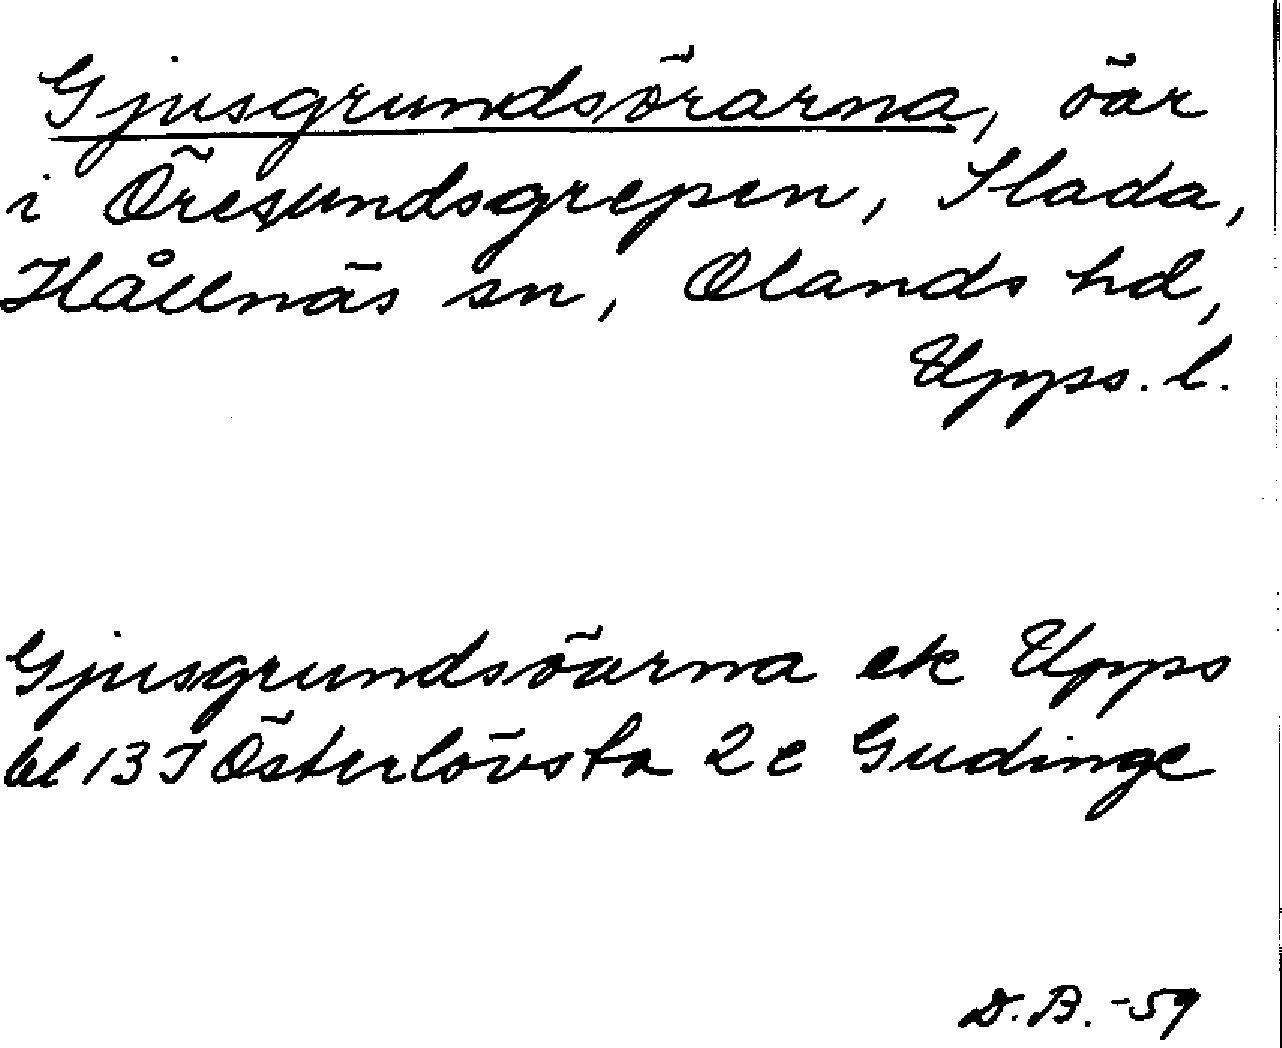 Gjusgrundsörarna, öar
i Öresundsgrepen, Slada,
Hållnäs sn, Olands hd,
Upps. l.
Gjusgrundsöarna ek Upps
bl 13 I Österlövsta 2 e Gudinge
D. B. -59